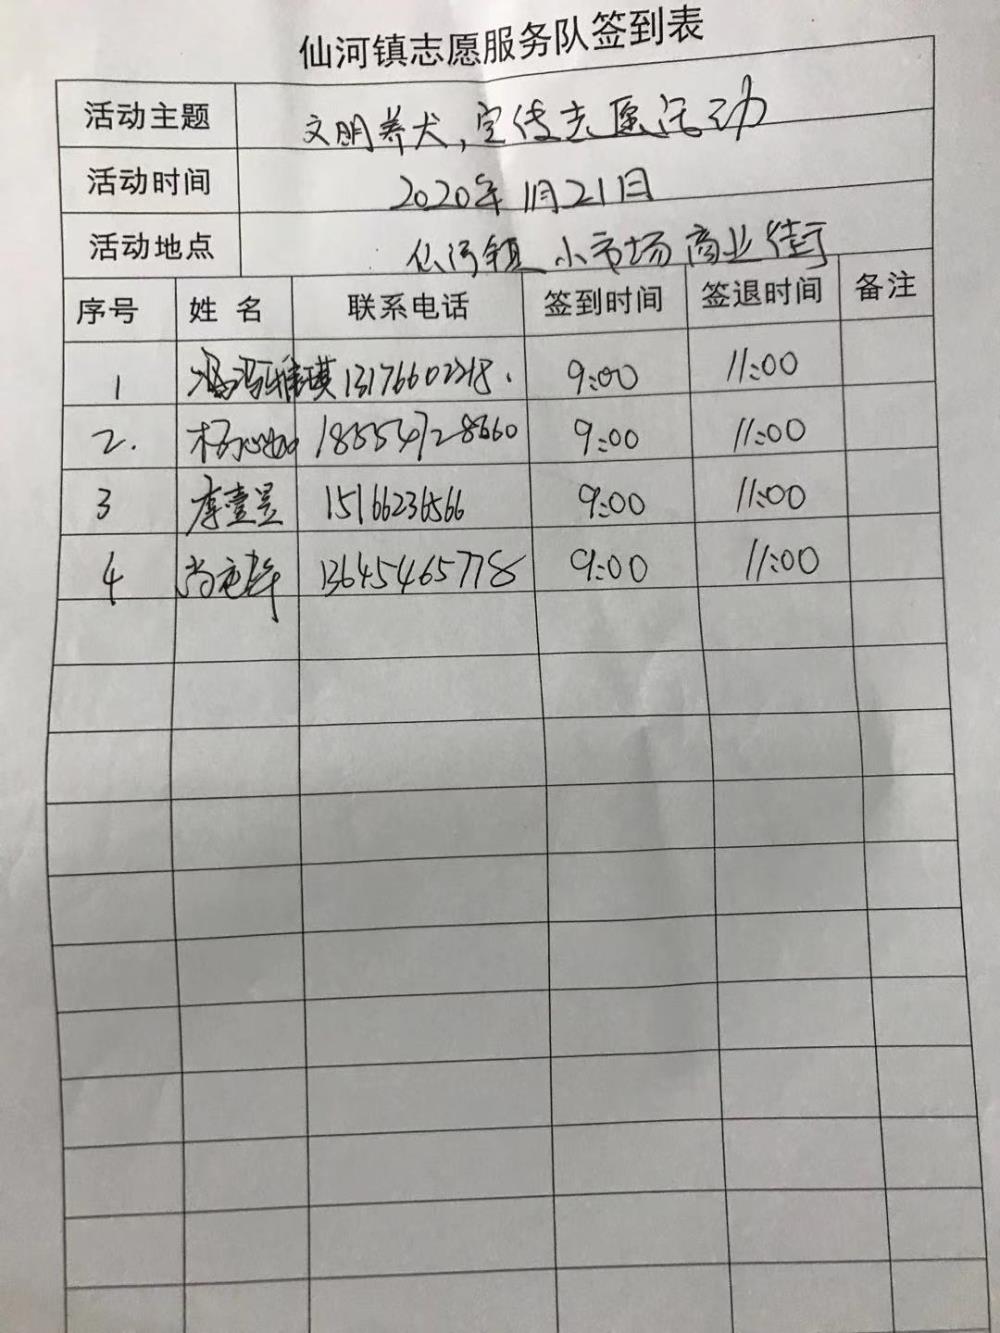 仙河镇志愿服务队签到表
活动主题 文明养犬,宣传志愿活动
活动时间 2020年11月21日
活动地点 仙河镇 小市场商业街
序号 姓名 联系电话 签到时间 签退时间 备注
1 冯雅瑛 13176602218. 9:00 11:00
2. 杨 18554728660 9:00 11:00
3 李壹昱 15166236566 9:00 11:00
4 尚 13645465778 9:00 11:00